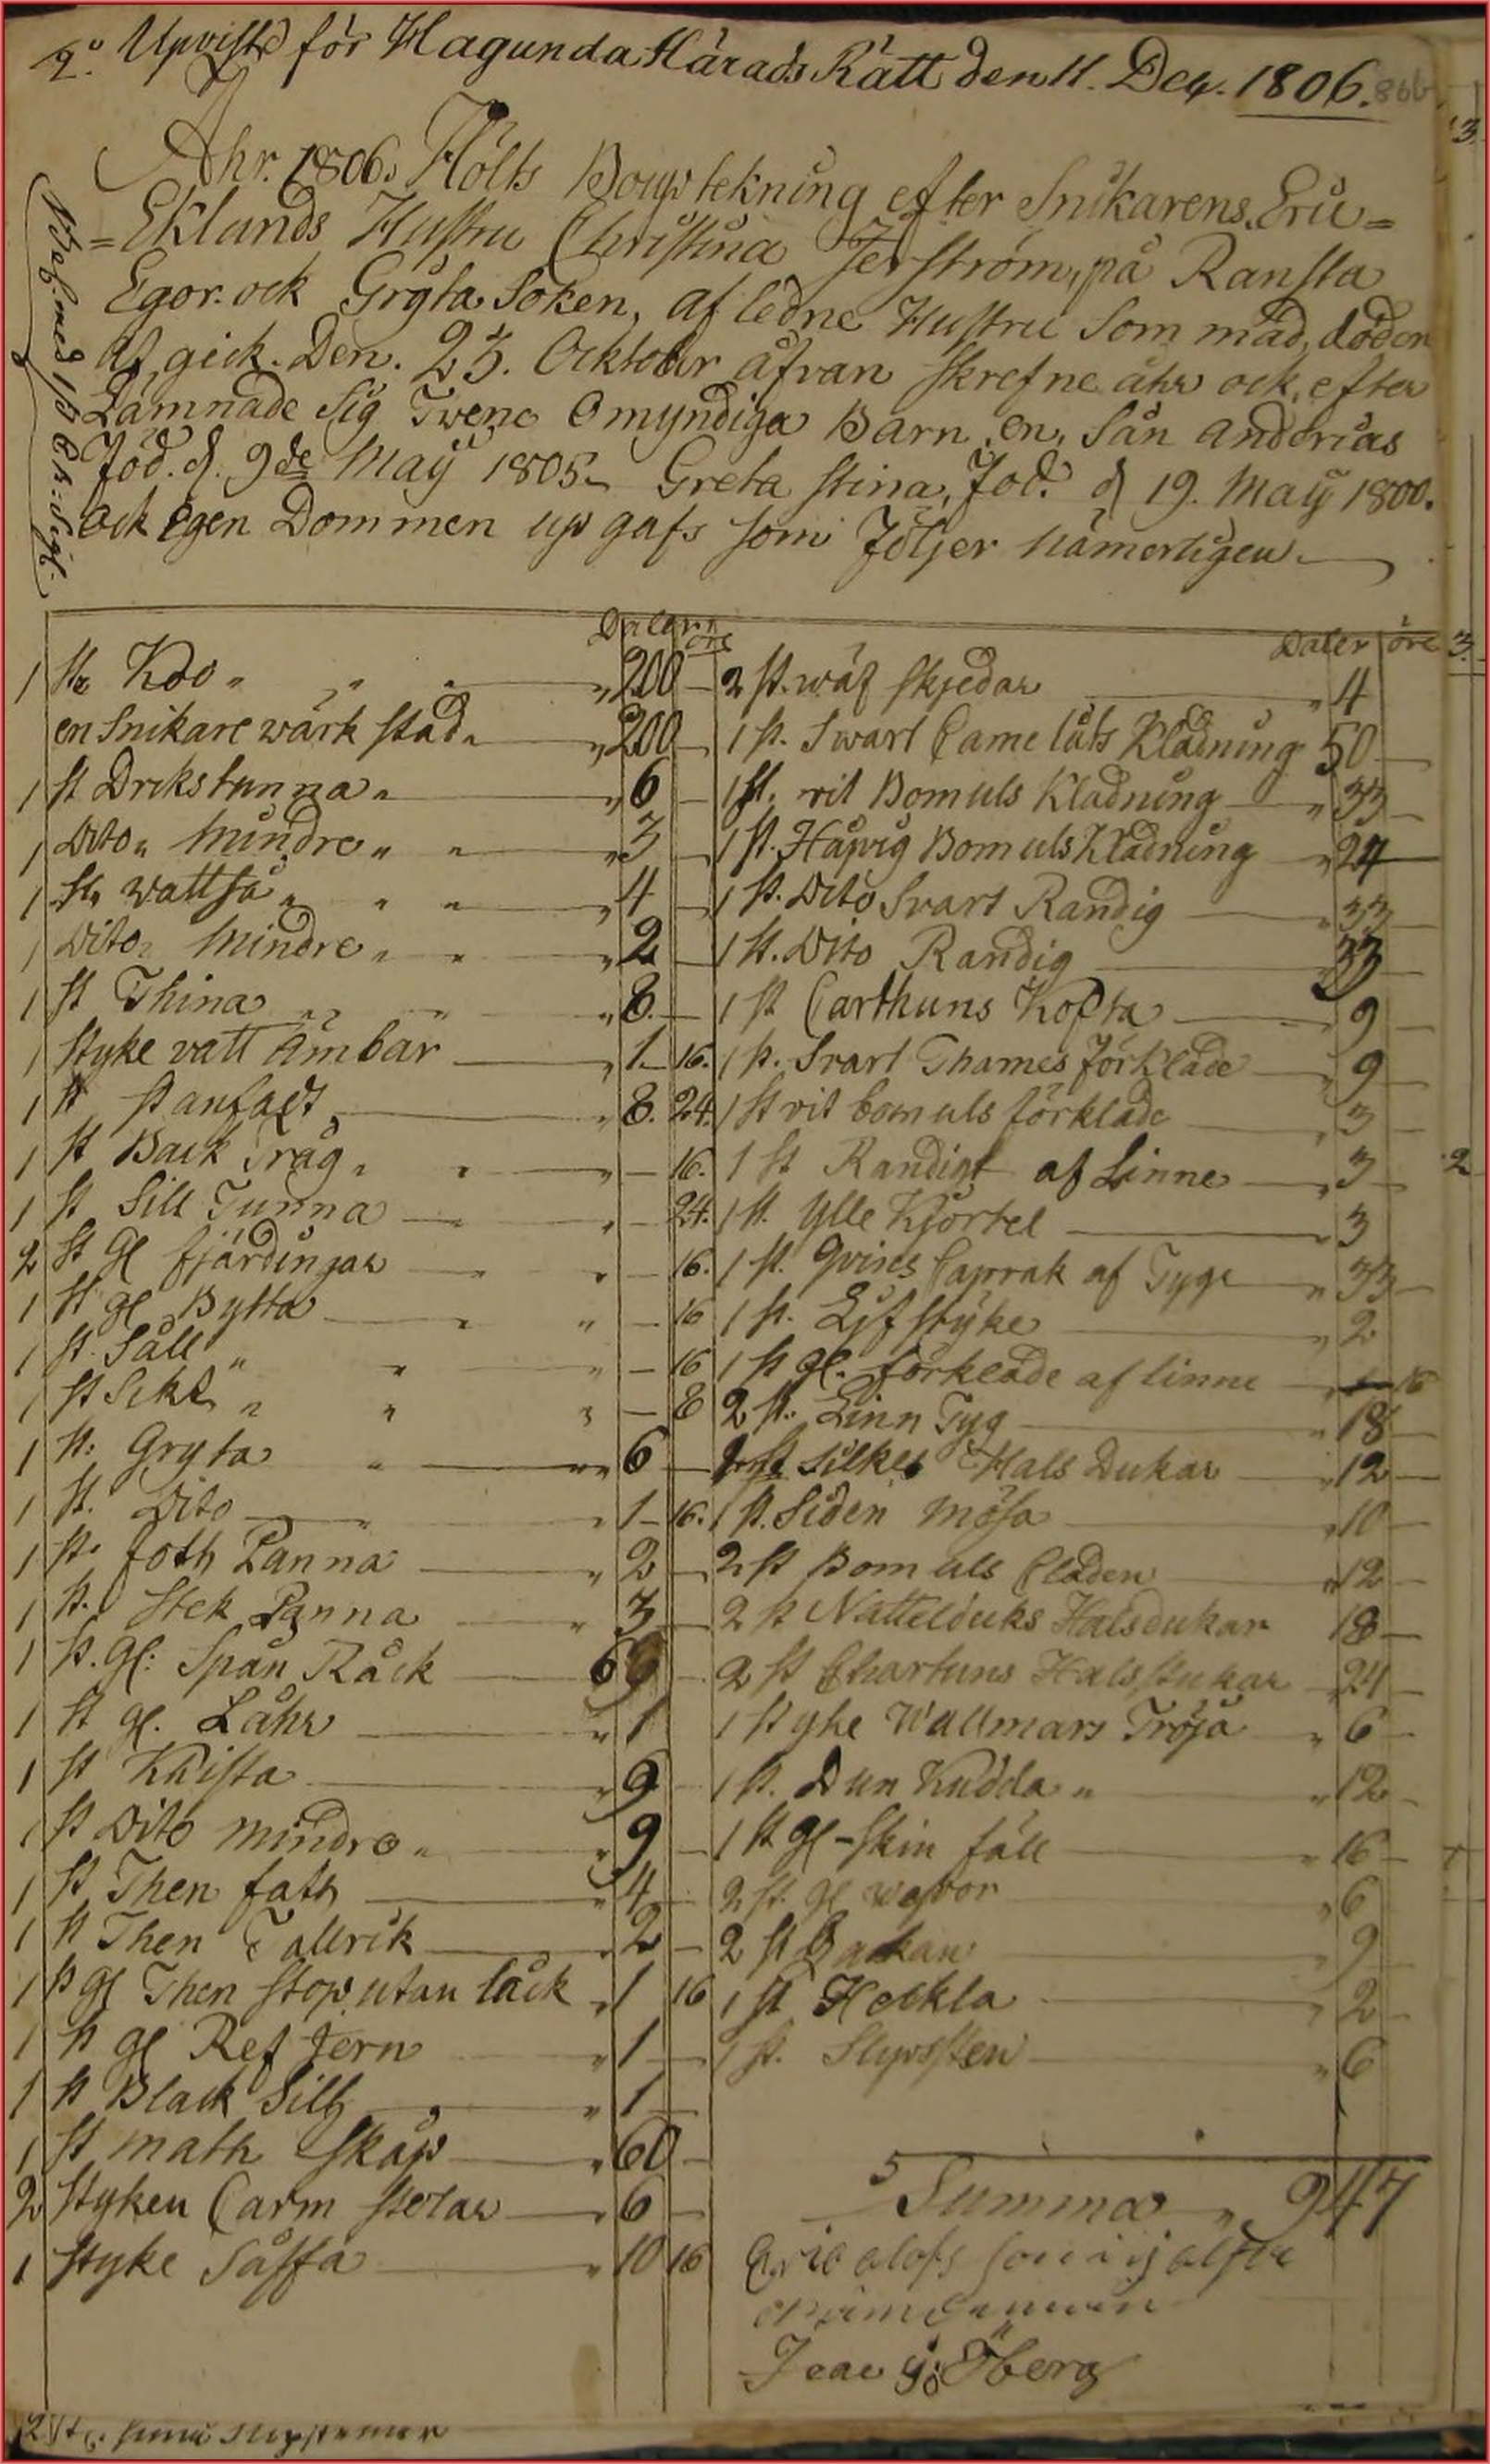 2:o Upviste för Hagunda Härads Rätt den 11. Dec. 1806.
Åhr. 1806. Hölts Bouptekning efter Snikarens, Eric=
=Eklunds Hustru Christina Jerström, på Ransta
Egor. ock Gryta Soken, af ledne Hustru Som mäd, döden
af, geick. Den. 23. Ocktober åfvan skrefne åhr ock, efter
Lämnade Sig Twene Omyndiga Barn, en, Sån andерias
föd. d. 9de Maÿ 1805. Greta Stina, föd. d 19. Maÿ 1800.
ock Egen Dommen up gafs som följer nämerligen.
Daler öre
1 St Koo 200
en Snikare wärk stad 200
1 st Drikstunna 6
1 Dito mindre 3
1 St wattså 4
1 Dito mindre 2
1 st Thina 8
1 styke vatt ämbar 1 16.
1 st stanfadt 8. 24.
1 st Back Tråg 16.
1 st Sill Tunna 24.
2 st gl fjärdingar 16.
1 st gl Bytta 16
1 st. Såll 16
1 st Sikt 8
1 st. Gryta 6
1 st. Dito 1 16.
1 st. foth Panna 2
1 st. Stek Panna 3
1 st. gl: Spån Råck
1 st gl. Låhr 1
1 st Khista 9
1 st Dito mindre 9
1 st Then fath 4
1 st Then Tallrik 2
1 st gl Then stop utan låck 1 16
1 st gl Ref Jern 1
1 st Black Sill 1
1 st math Skåp 60
2 styken Carm stolar 6
1 styke Såffa 10 16
Daler öre
2 st. wäf skjedar 4
1 st. Swart Camelåts Klädning 50
1 st. vit Bomuls Klädning 33
1 st. Bomuls Klädning 24
1 st. Dito Svart Randig 33
1 st. Dito Randig 33
1 st Carthuns Kofta 9
1 st. Svart Thames förkläde 9
1 st vit bomuls förkläde 3
1 st Randigt af Linne 3
1 st. Ylle Kjortel 3
1 st. af Tyge 33
1 st. Lifstyke 2
1 st gl. förkläde af linne 16
2 st. Linn Tyg 18
st Silkes Hals Dukar 12
1 st. Siden mösa 10
2 st Bomuls Cläden 12
2 st Nattelduks Halsdukar 18
2 st Chartuns Halsdukar 24
1 styke Wallmars Tröja 6
1 st. Dun Kudda 12
1 st gl-skin fäll 16
2 st. gl 6
2 st 9
1 st Heckla 2
1 st. Slipsten 6
Summa 947
Eric olofs son i
Öberg